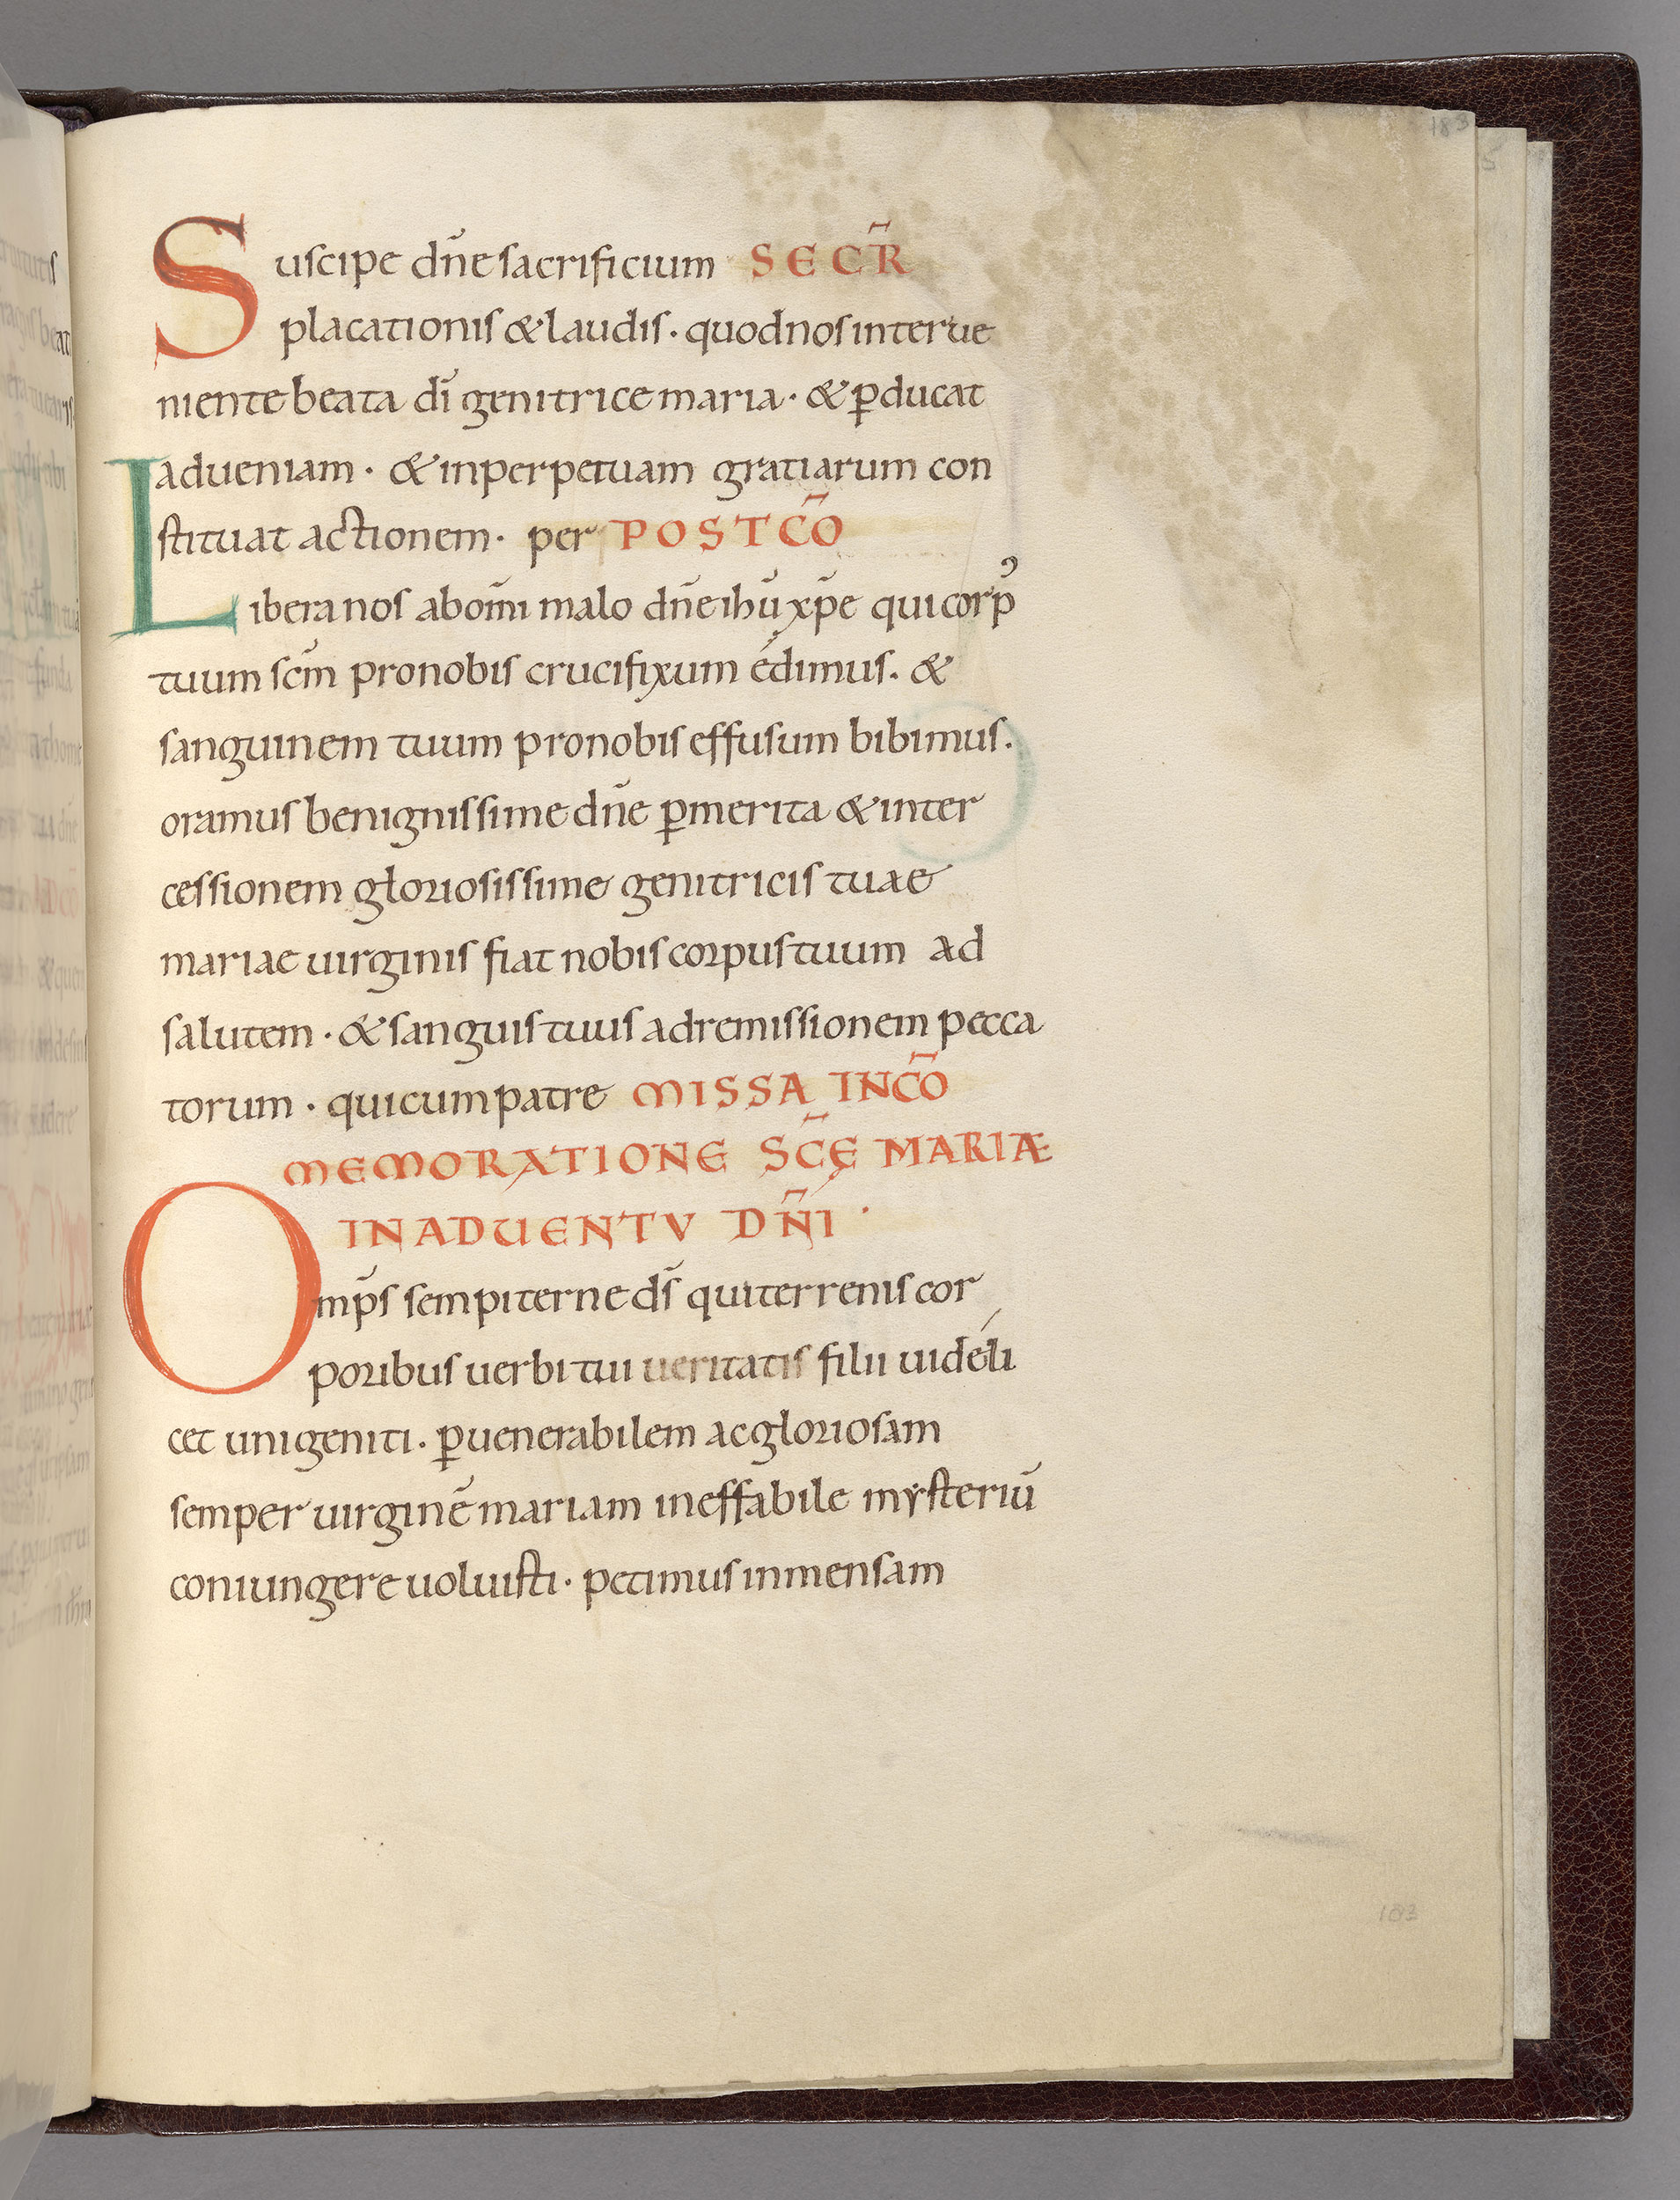 183
5
Suscipe dñe sacrificium SECR̃
placationis & laudis · quod nos interue
niente beata dī genitrice maria · & ꝑducat
ad ueniam · & in perpetuam gratiarum con
stituat actionem · per POSTCÕ
Libera nos ab om̄i malo dñe ihū xp̄e qui corpꝰ
tuum sc̄m pro nobis crucifixum édimus. &
sanguinem tuum pro nobis effusum bibimus.
oramus benignissime dñe ꝑ merita & inter
cessionem gloriosissime genitricis tuae
mariae uirginis fiat nobis corpus tuum ad
salutem · & sanguis tuus ad remissionem pecca
torum · qui cum patre MISSA INCÕ
MEMORATIONE SC̄Ę MARIÆ
IN ADUENTV DÑI ·
Omp̄s sempiterne ds̄ qui terrenis cor
poribus uerbi tui ueritatis filii uidéli
cet unigeniti · ꝑ uenerabilem ac gloriosam
semper uirginē mariam ineffabile mẏsteriū
coniungere uoluisti · petimus inmensam
183